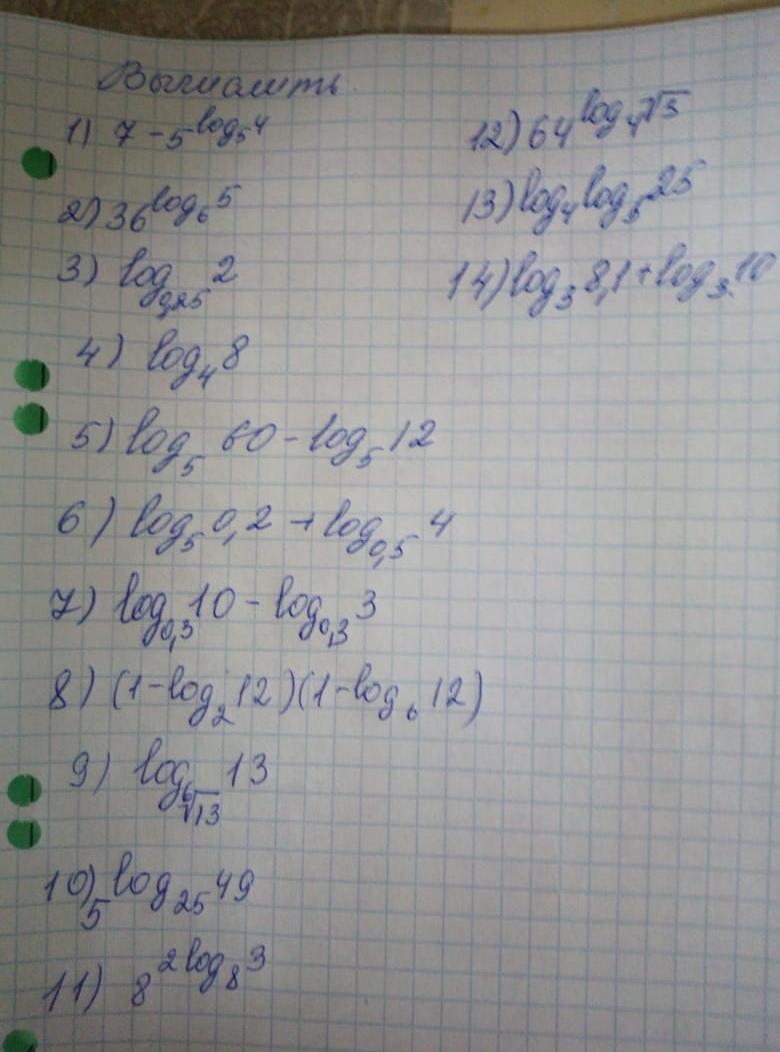 Вычислить.
1) 7 - 5^{log_5 4}
2) 36^{log_6 5}
3) log_{0,25} 2
4) log_4 8
5) log_5 60 - log_5 12
6) log_5 0,2 + log_{0,5} 4
7) log_{0,3} 10 - log_{0,3} 3
8) (1-log_2 12)(1-log_6 12)
9) log_{\sqrt[6]{13}} 13
10) 5^{log_{25} 49}
11) 8^{2log_8 3}
12) 64^{log_4 √3}
13) log_4 log_5 25
14) log_3 8,1 + log_3 10